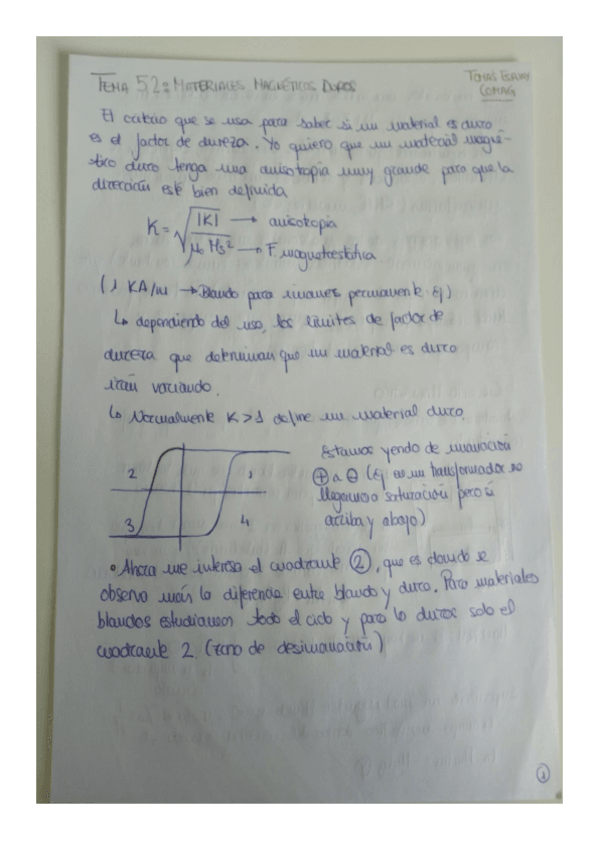 TEMA 5.2: MATERIALES MAGNÉTICOS DUROS
TOMAS
COMAG
El criterio que se usa para saber si un material es duro
es el factor de dureza. Yo quiero que un material magné-
tico duro tenga una anisotropía muy grande para que la
dirección esté bien definida
K = √ |K| → anisotropía
μ₀ Ms² → F. magnetostática
(1 KA/m → Blando para imanes permanente Ej)
↳ dependiendo del uso, los límites de factor de
dureza que determinan que un material es duro
irán variando.
↳ Normalmente K > 1 define un material duro.
Estamos yendo de imanación
⊕ a ⊖ (Ej en un transformador no
llegamos a saturación pero sí
arriba y abajo)
2 1
3 4
• Ahora me interesa el cuadrante ②, que es donde se
observa más la diferencia entre blando y duro. Para materiales
blandos estudiamos todo el ciclo y para lo duros solo el
cuadrante 2. (zona de desimanación)
1